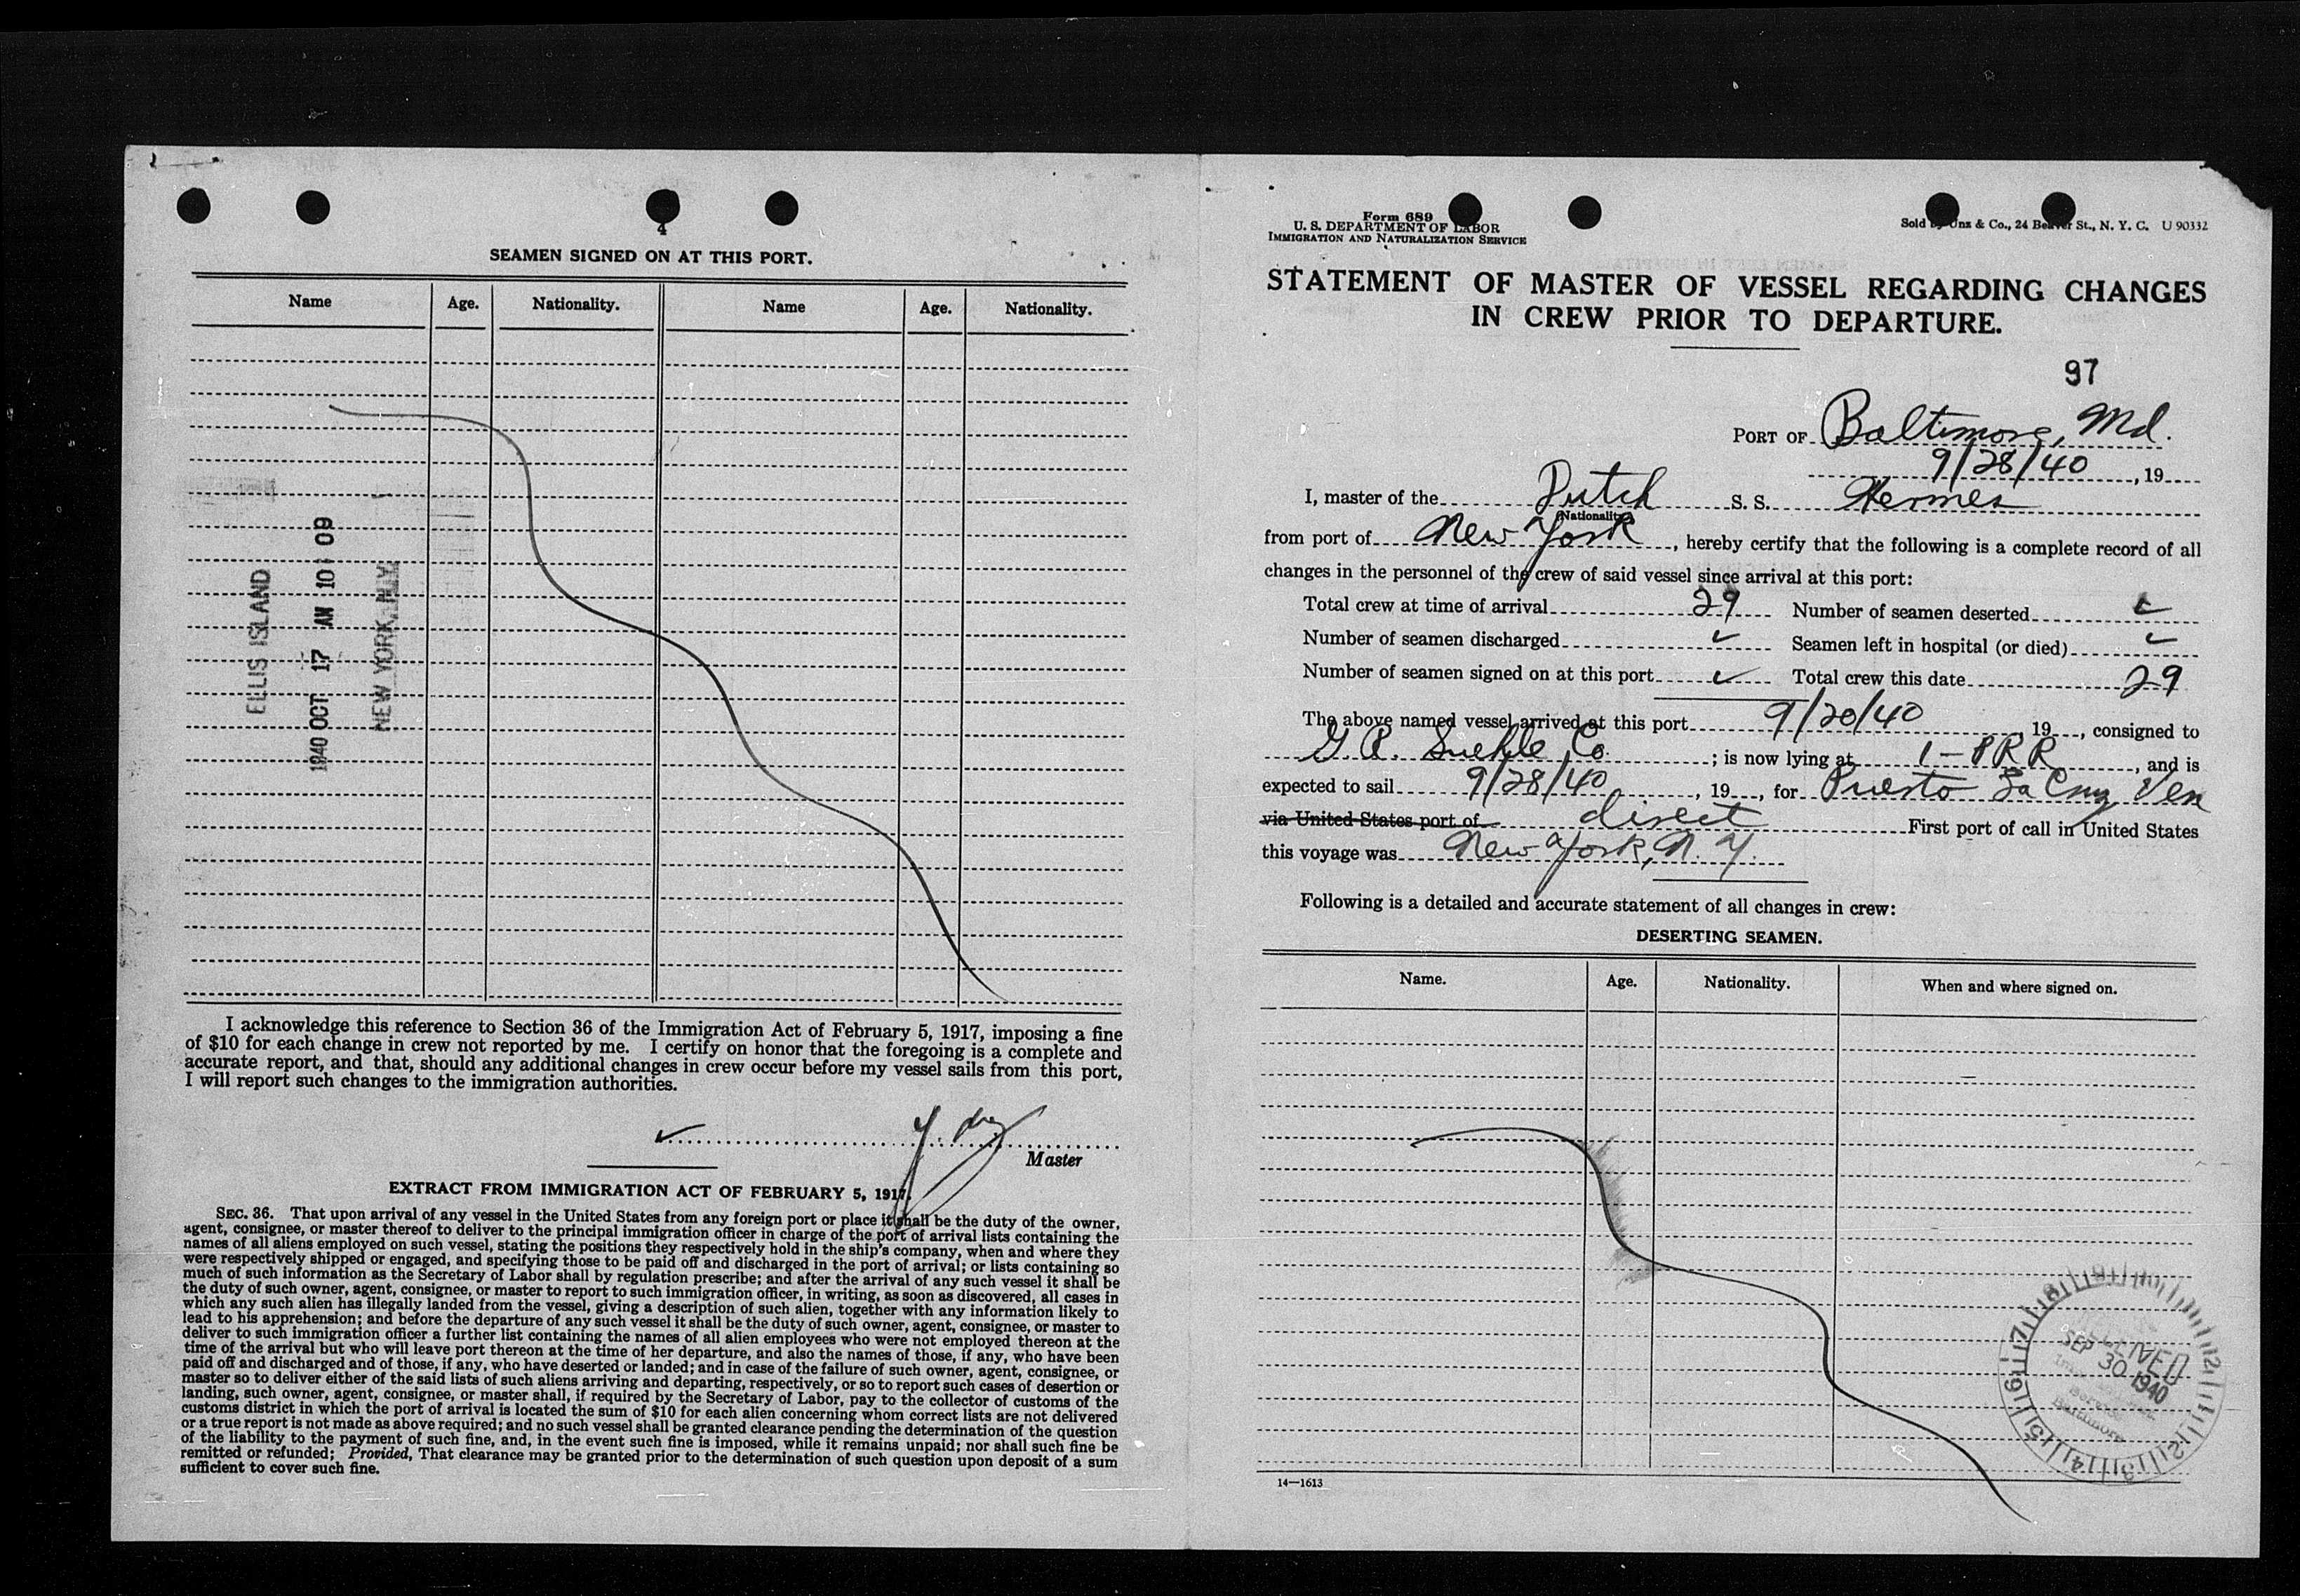 4
SEAMEN SIGNED ON AT THIS PORT.
Name Age. Nationality. Name Age. Nationality.
ELLIS ISLAND
1940 OCT 17 AM 10 09
NEW YORK, N.Y.
I acknowledge this reference to Section 36 of the Immigration Act of February 5, 1917, imposing a fine
of $10 for each change in crew not reported by me. I certify on honor that the foregoing is a complete and
accurate report, and that, should any additional changes in crew occur before my vessel sails from this port,
I will report such changes to the immigration authorities.
Master
EXTRACT FROM IMMIGRATION ACT OF FEBRUARY 5, 1917.
SEC. 36. That upon arrival of any vessel in the United States from any foreign port or place it shall be the duty of the owner,
agent, consignee, or master thereof to deliver to the principal immigration officer in charge of the port of arrival lists containing the
names of all aliens employed on such vessel, stating the positions they respectively hold in the ship's company, when and where they
were respectively shipped or engaged, and specifying those to be paid off and discharged in the port of arrival; or lists containing so
much of such information as the Secretary of Labor shall by regulation prescribe; and after the arrival of any such vessel it shall be
the duty of such owner, agent, consignee, or master to report to such immigration officer, in writing, as soon as discovered, all cases in
which any such alien has illegally landed from the vessel, giving a description of such alien, together with any information likely to
lead to his apprehension; and before the departure of any such vessel it shall be the duty of such owner, agent, consignee, or master to
deliver to such immigration officer a further list containing the names of all alien employees who were not employed thereon at the
time of the arrival but who will leave port thereon at the time of her departure, and also the names of those, if any, who have been
paid off and discharged and of those, if any, who have deserted or landed; and in case of the failure of such owner, agent, consignee, or
master so to deliver either of the said lists of such aliens arriving and departing, respectively, or so to report such cases of desertion or
landing, such owner, agent, consignee, or master shall, if required by the Secretary of Labor, pay to the collector of customs of the
customs district in which the port of arrival is located the sum of $10 for each alien concerning whom correct lists are not delivered
or a true report is not made as above required; and no such vessel shall be granted clearance pending the determination of the question
of the liability to the payment of such fine, and, in the event such fine is imposed, while it remains unpaid; nor shall such fine be
remitted or refunded; Provided, That clearance may be granted prior to the determination of such question upon deposit of a sum
sufficient to cover such fine.
Form 689
U. S. DEPARTMENT OF LABOR
IMMIGRATION AND NATURALIZATION SERVICE
Sold by Unz & Co., 24 Beaver St., N. Y. C. U 90332
STATEMENT OF MASTER OF VESSEL REGARDING CHANGES
IN CREW PRIOR TO DEPARTURE.
97
PORT OF Baltimore, Md.
9/28/40, 19
I, master of the Dutch S. S. Hermes
(Nationality)
from port of New York, hereby certify that the following is a complete record of all
changes in the personnel of the crew of said vessel since arrival at this port:
Total crew at time of arrival 29 Number of seamen deserted ✓
Number of seamen discharged ✓ Seamen left in hospital (or died) ✓
Number of seamen signed on at this port ✓ Total crew this date 29
The above named vessel arrived at this port 9/20/40 19, consigned to
Co.; is now lying at 1-PRR, and is
expected to sail 9/28/40, 19, for Puerto La Cruz Ven
via United States port of direct First port of call in United States
this voyage was New York, N. Y.
Following is a detailed and accurate statement of all changes in crew:
DESERTING SEAMEN.
Name. Age. Nationality. When and where signed on.
RECEIVED
SEP 30 1940
Baltimore
14—1613